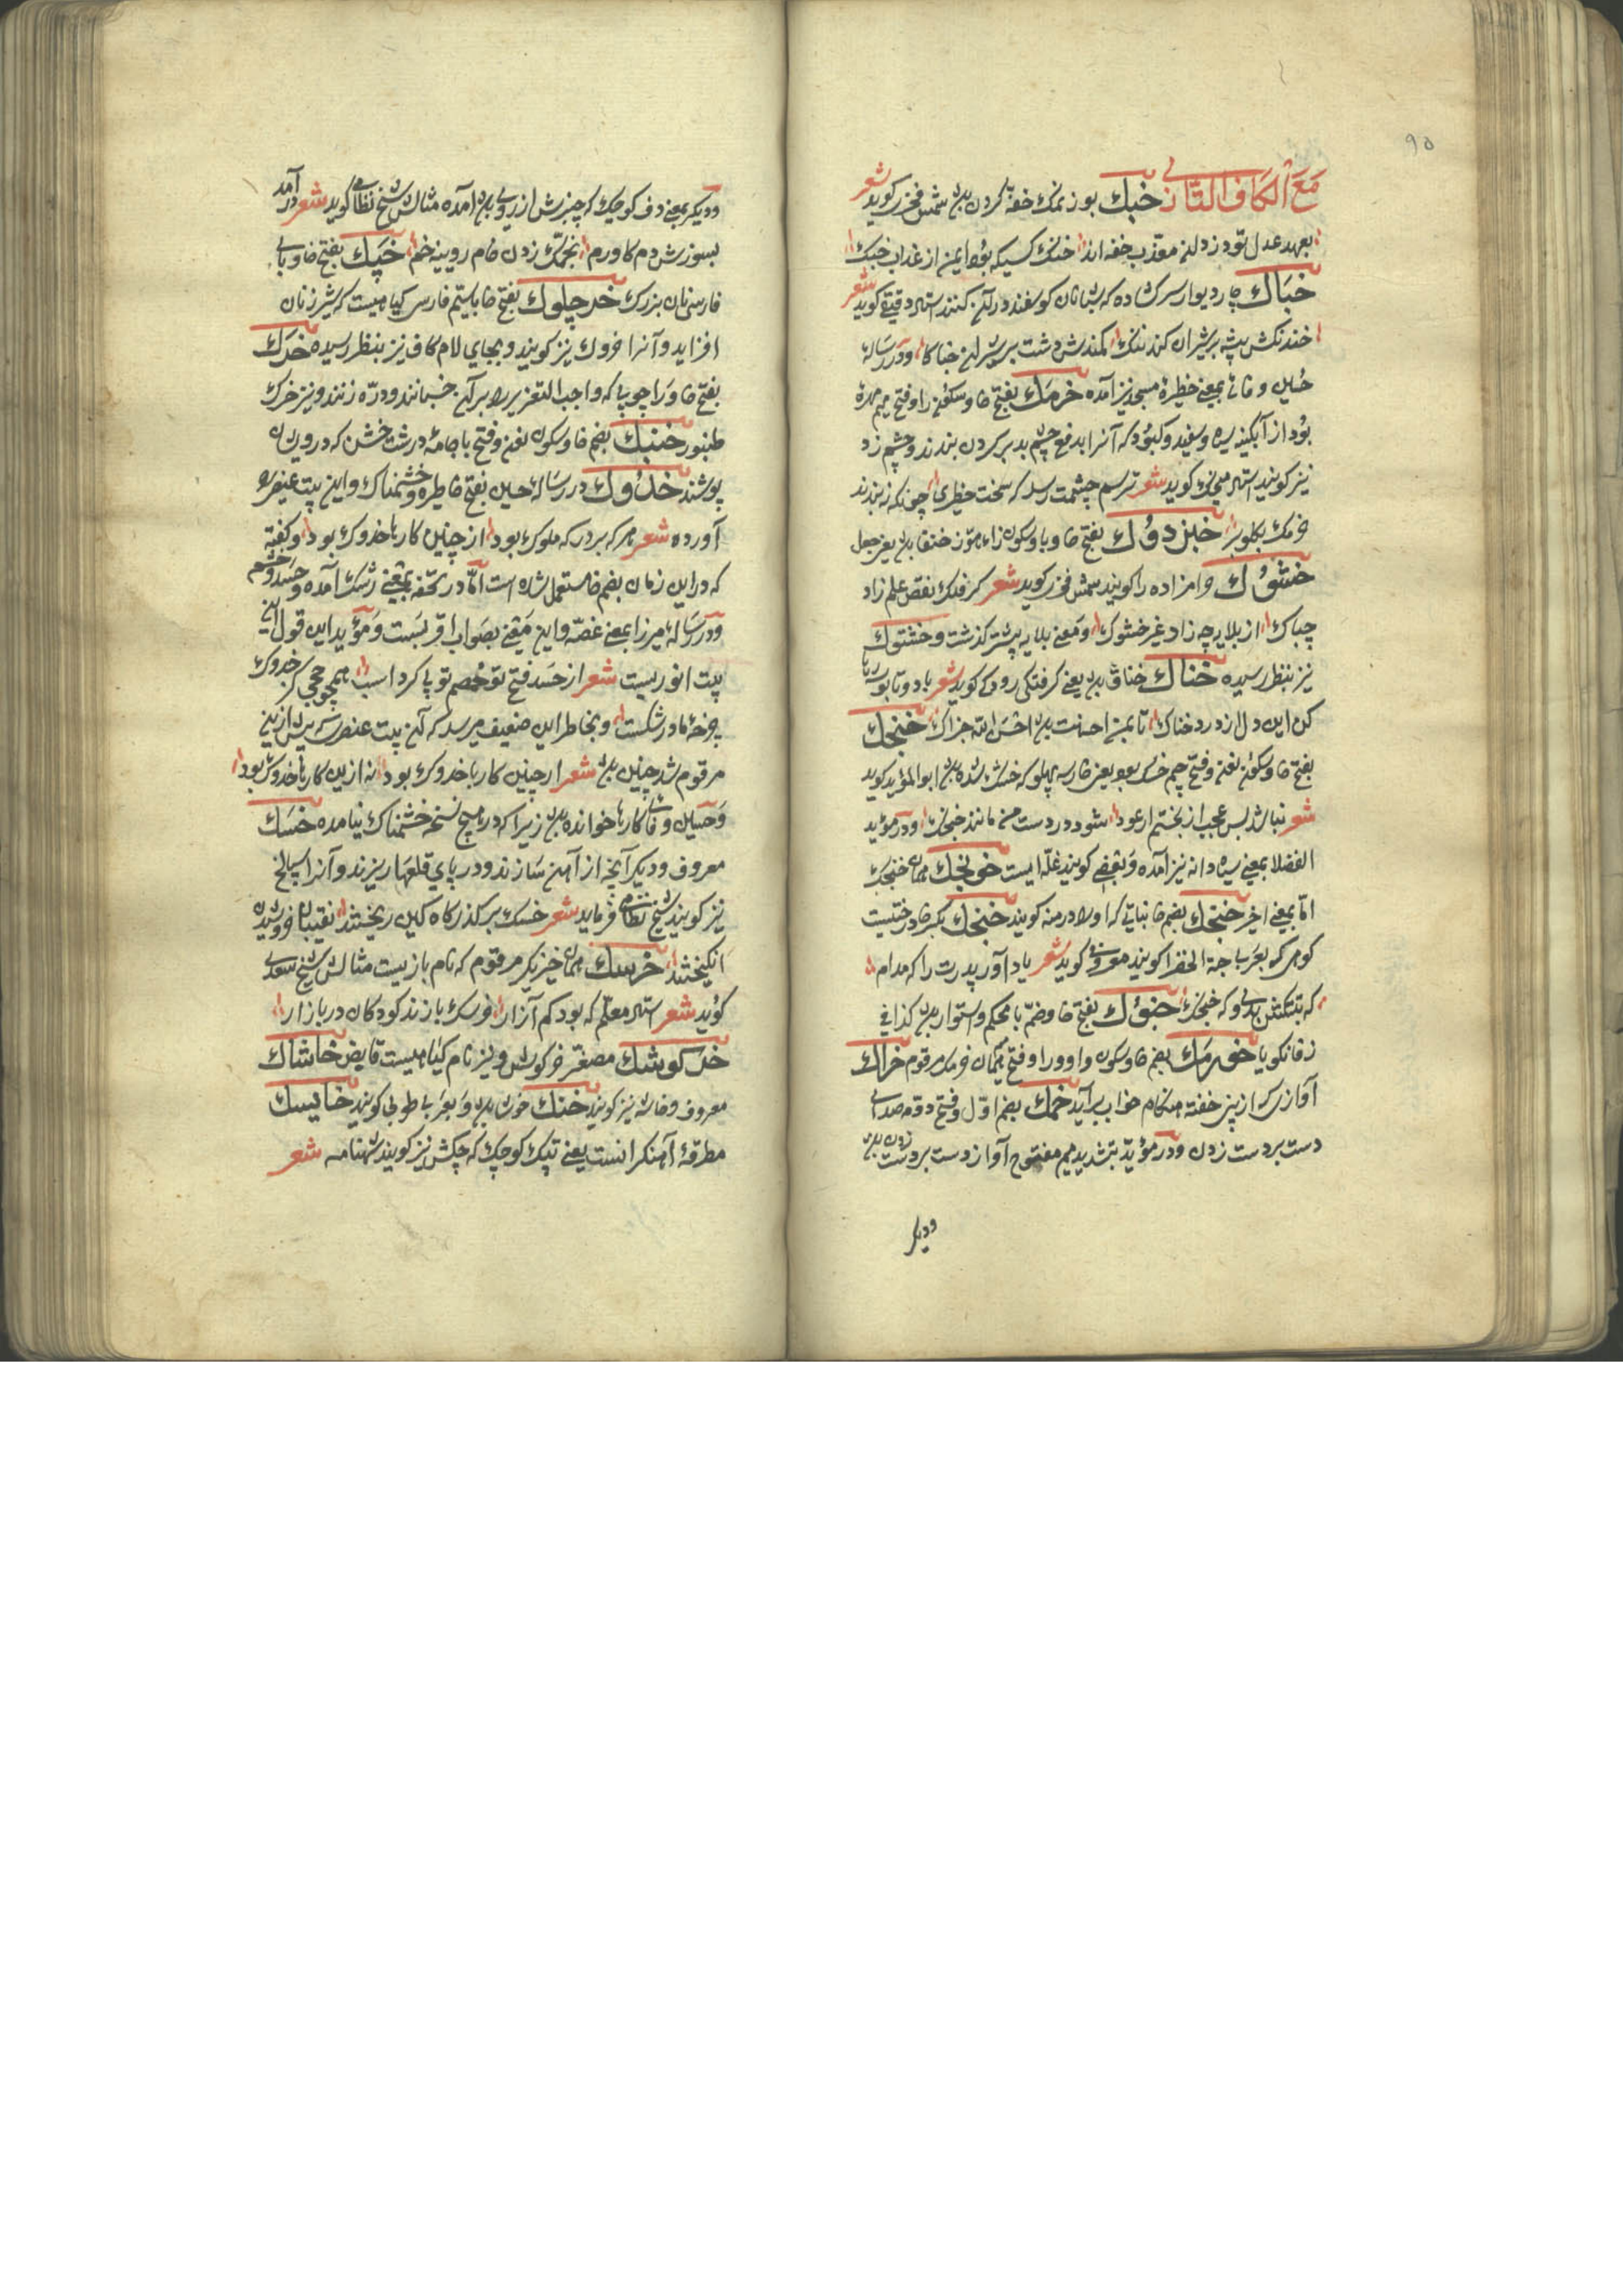 ۹۵
مَعَ الکاف التازی خبک بوزن نمک خفه کردن بود شمس فخری کوید شعر
بعهد عدل تو دزدان معذب خفه اند خنک کسیکه بود ایمن از عذاب خبک
خباک چاردیوار سرکشاده که شبانان کوسفند در آن کنند استاد دقیقی کوید شعر
خدنکش بیشه بر شیران کند تنک کمندش دشت بر کوران خباکا و در رساله
حسین وفائی بمعنی حظیره مسجد نیز آمده خرمک بفتح خا و سکون را و فتح میم مهره
بود از آبکینه سیاه و سفید و کبود که آنرا بدفع چشم بد بر کردن بندند و چشم زد
نیز کویند استاد منجیک کوید شعر ترسم چشمت رسد که سخت خطیری چونکه نبندند
خرمک بکلو بر خبزدوک بفتح خا و با و سکون زاء هوز خنفسا بود یعنی جعل
خشوک حرامزاده را کویند شمس فخری کوید شعر کر فلک نقص علم زاد
چباک از بلایه چه زاد غیر خشوک و معنی بلایه پیشتر کذشت و خشتوک
نیز بنظر رسیده خناک خناق بود یعنی کرفتکی رودکی کوید شعر
کن این دل از درد خناک تا بمن احسانت بود احسن الله جزاک خنجک
بفتح خا و سکون نون و فتح جیم خسک بود یعنی خار سه پهلو که خشک شده بود ابوالمؤید کوید
شعر نباشد بس عجب از بختم ار عود شود در دست من مانند خنجک و در مؤید
الفضلا بمعنی سیاه دانه نیز آمده و بعضی کویند غله ایست خونجک همان خنجک
اما بمعنی اخیر خنجک بضم خا نباتی که او را درمنه کویند خنجک بکسر خا درختیست
کوهی که بعربی حبة الخضرا کویند معروفی کوید شعر یاد آور پدرت را که مدام
خبوک بفتح خا و ضم با محکم و استوار بود کذا فی
زفانکویا خورمک بضم خا و سکون واو و را و فتح میم همان خرمک مرقوم خراک
آوازی که از بینی خفته هنکام خواب برآید خمک بضم اول و فتح دوم صدای
دست بر دست زدن و در مؤید بتشدید میم مفتوح آواز دست بر دست زدن بود
ودیکر
ودیکر بمعنی دف کوچک که چنبرش از روی بود آمده مثالش شیخ نظامی کوید شعر درآمد
بشورش دم کاودم بخمک زدن خام رویینه خم خپک بفتح خا و بای
فارسی نان بزرک خرچلوک بفتح خا با سیم فارسی کیاهیست که شیر زنان
افزاید و آنرا خروک نیز کویند و بجای لام کاف نیز بنظر رسیده خرک
بفتح خا و را چوبی که واجب التعزیر را بر آن خسبانند و دره زنند و نیز خرک
طنبور خنبک بضم خا و سکون نون و فتح با جامهٔ درشت خشن که درویشان
پوشند خدوک در رسالهٔ حسین بفتح خا طیره و خشمناک و این بیت عنصری
آورده شعر هر که بر درکه ملوک بود از چنین کارها خدوک بود و کفته
که در این زمان بضم خا مستعمل شده است اما در تحفه بمعنی رشک آمده و حسد و خشم
و در رسالهٔ میرزا بمعنی غصه و این معنی بصواب اقربست و مؤید این قول است
بیت انوریست شعر از حسد فتح تو خصم تو پی کرد اسب همچو جحی کز خدوک
چرخهٔ مادر شکست و بخاطر این ضعیف میرسد که آن بیت عنصری که پیش ازین
مرقوم شد چنین بود شعر ار چنین کار با خدوک بود نه ازین کارها خدوک بود
و حسین وفائی کارها خوانده بود زیرا که در هیچ نسخه خشمناک نیامده خسک
معروف و دیکر آنچه از آهن سازند و در پای قلعها ریزند و آنرا
نیز کویند شیخ نظامی فرماید شعر خسک بر کذرکاه کین ریختند نقیبان خروشیدن
انکیختند خرسک همان خیزیکر مرقوم که نام بازیست مثالش شیخ سعدی
کوید شعر استاد معلم که بود کم آزار خرسک بازند کودکان در بازار
خرکوشک مصغر خرکوش و نیز نام کیاهیست قابض خاشاک
معروف و خاشه نیز کویند خنک خوش بود و بعربی طوبی کویند خایسک
مطرقهٔ آهنکرانست یعنی پتک کوچک که چکش نیز کویند شهنامه شعر